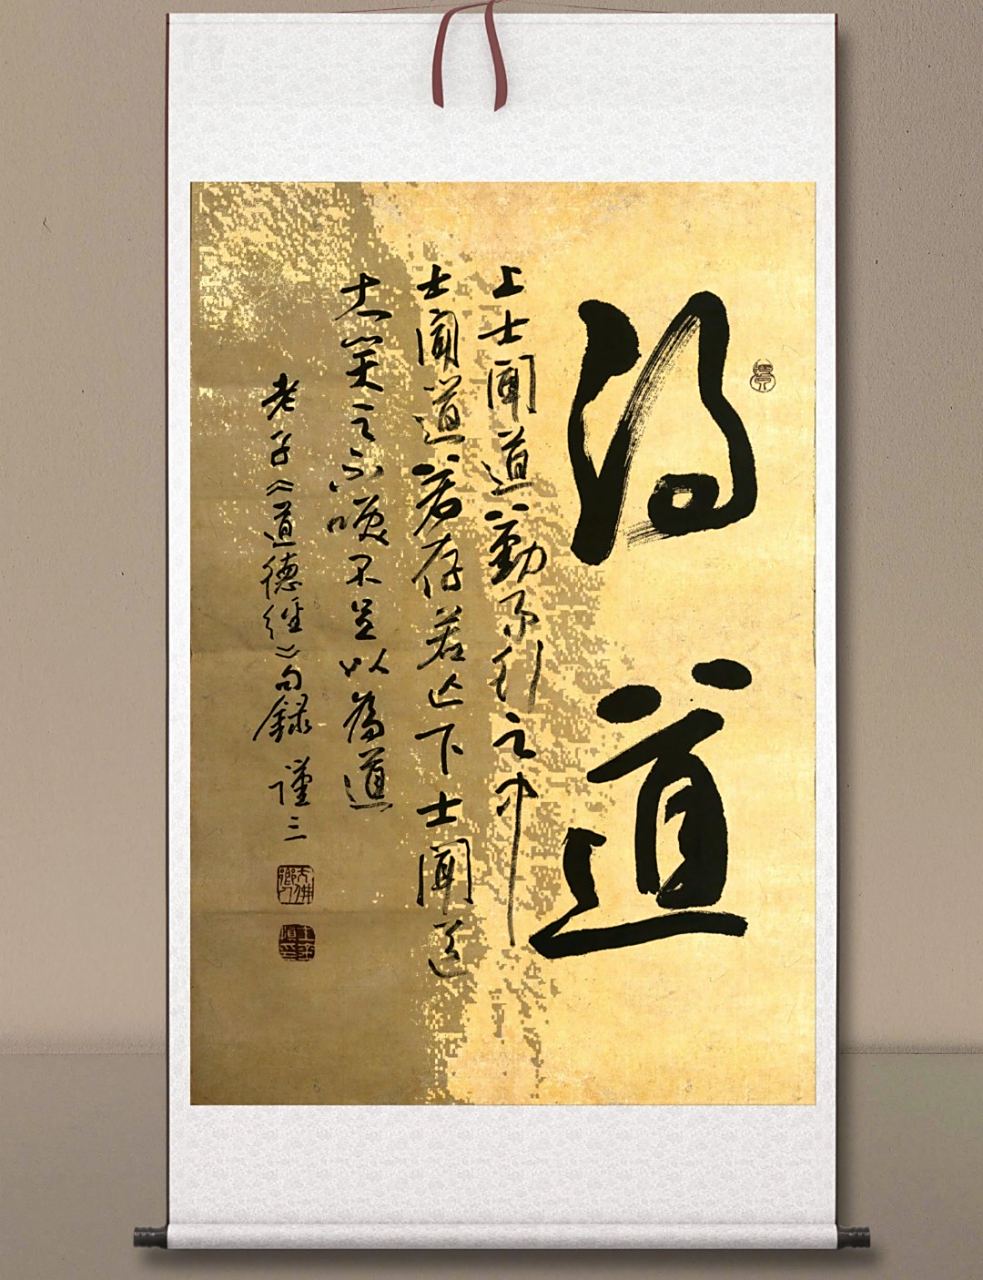 得道
上士聞道勤而行之中
士聞道若存若亡下士聞道
大笑之不咲不足以為道
老子《道德經》句錄 謹三